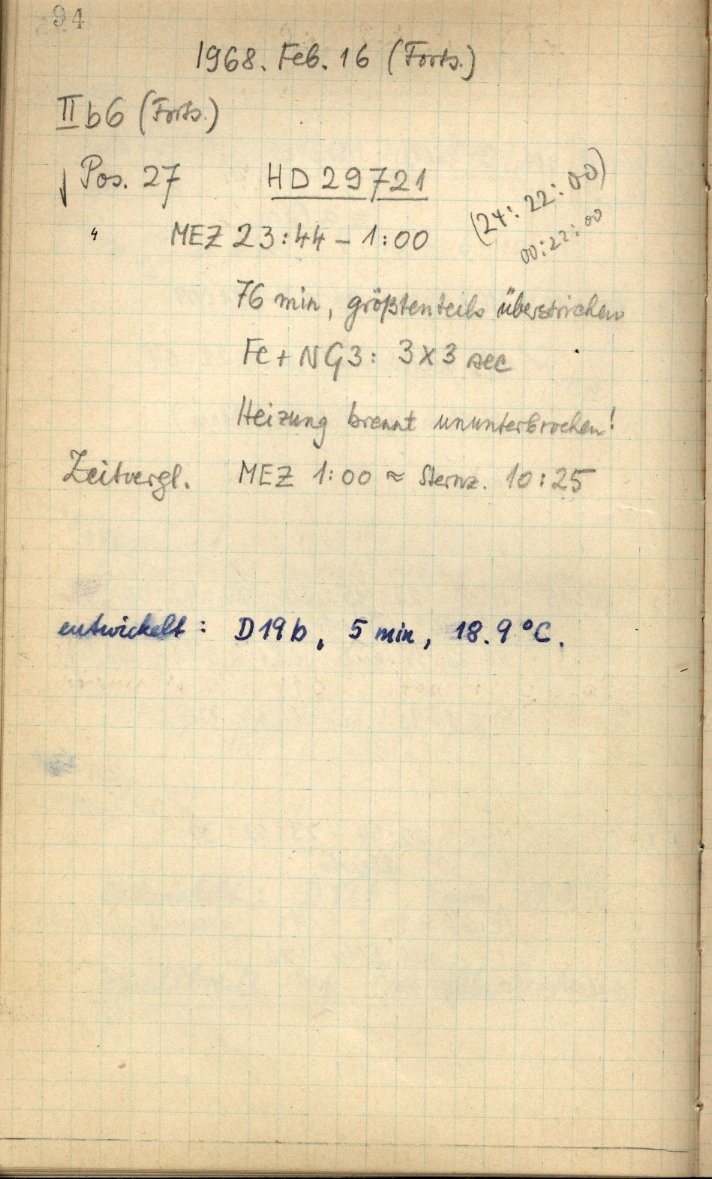 94
1968. Feb. 16 (Forts.)
II b6 (Forts.)
√ Pos. 27 HD 29721
(24:22:00)
00:22:00
" MEZ 23:44 – 1:00
76 min, größtenteils überstrichen
Fe + NG3: 3x3 sec
Heizung brennt ununterbrochen!
Zeitvergl. MEZ 1:00 ≈ Sternz. 10:25
entwickelt: D19b, 5 min, 18.9 °C.